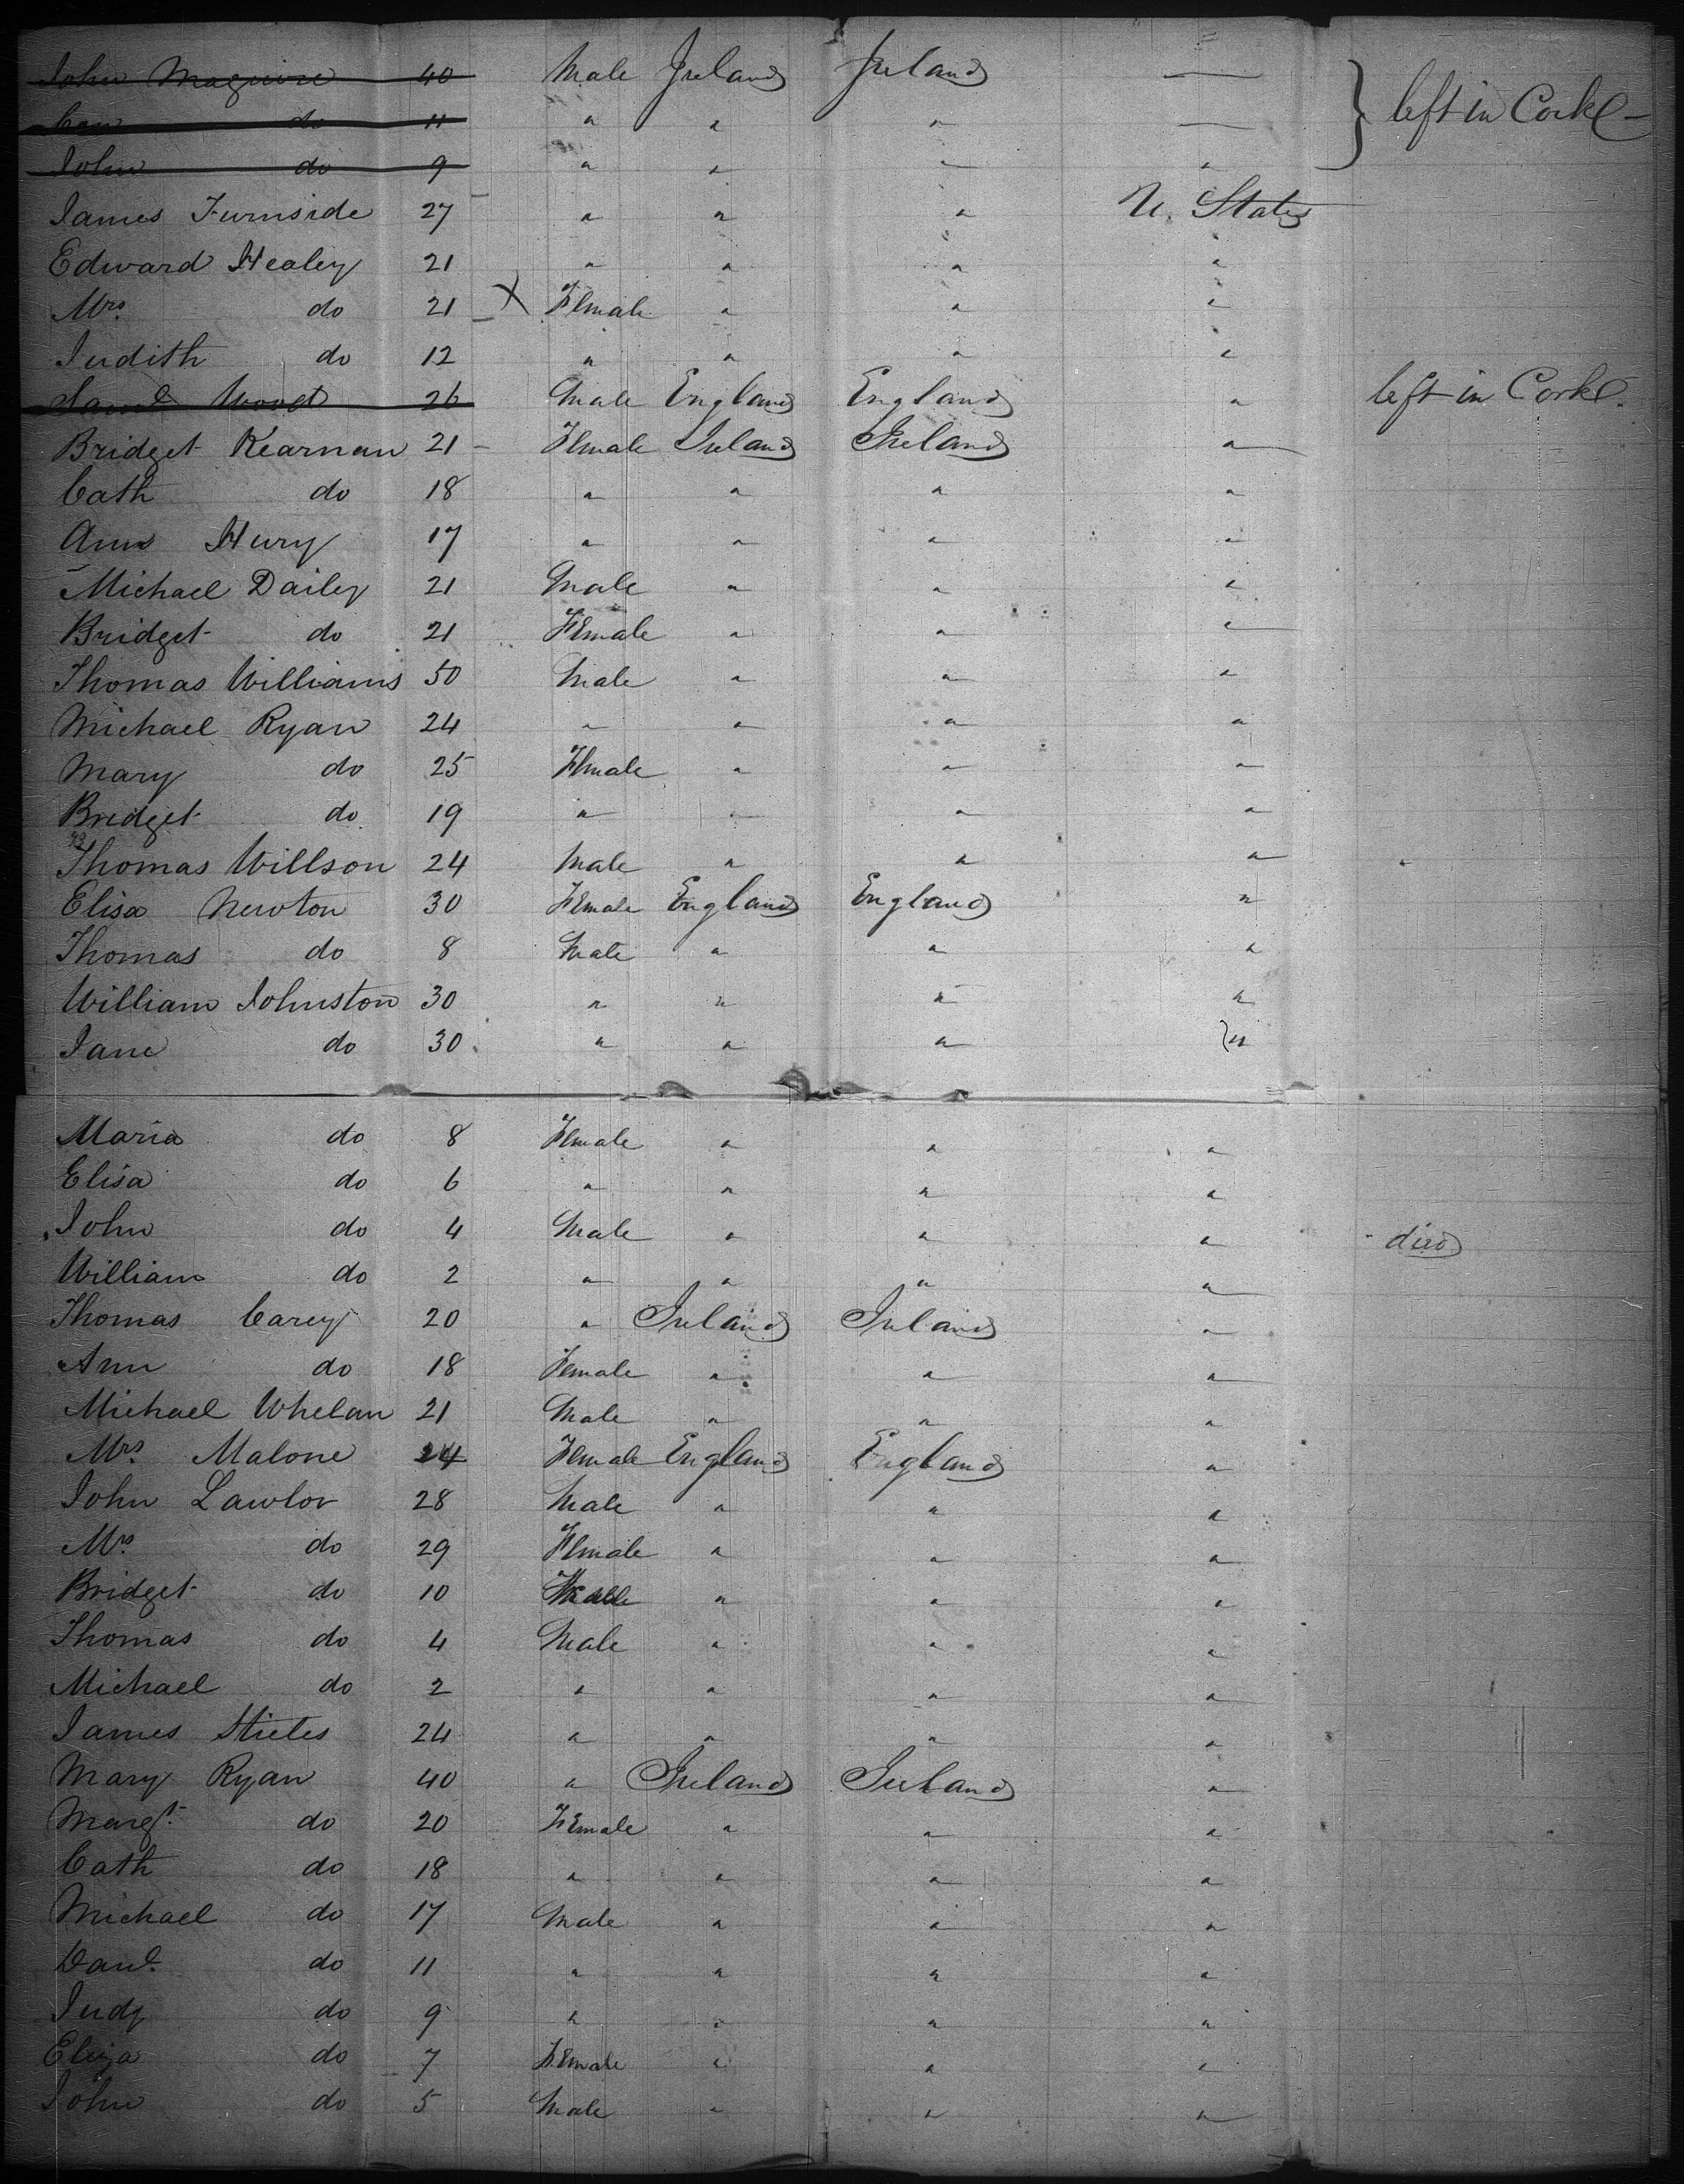 John Maguire 40 Male Ireland Ireland — } left in Cork —
do 11 " " " —
John do 9 " " " "
James Furnside 27 " " " U. States
Edward Healey 21 " " " "
Mrs. do 21 X Female " " "
Judith do 12 " " " "
Saml Wood 26 Male England England " left in Cork.
Bridget Kearnan 21 Female Ireland Ireland "
Cath do 18 " " " "
Ann Hury 17 " " " "
Michael Dailey 21 Male " " "
Bridget do 21 Female " " "
Thomas Williams 50 Male " " "
Michael Ryan 24 " " " "
Mary do 25 Female " " "
Bridget do 19 " " " "
Thomas Willson 24 Male " " "
Elisa Newton 30 Female England England "
Thomas do 8 Male " " "
William Johnston 30 " " " "
Jane do 30 " " " "
Maria do 8 Female " " "
Elisa do 6 " " " "
John do 4 Male " " " died
William do 2 " " " "
Thomas Carey 20 " Ireland Ireland "
Ann do 18 Female " " "
Michael Whelan 21 Male " " "
Mrs. Malone 24 Female England England "
John Lawlor 28 Male " " "
Mrs. do 29 Female " " "
Bridget do 10 " " "
Thomas do 4 Male " " "
Michael do 2 " " " "
James 24 " " " "
Mary Ryan 40 " Ireland Ireland "
Margt. do 20 Female " " "
Cath do 18 " " " "
Michael do 17 Male " " "
Danl. do 11 " " " "
Judy do 9 " " " "
Eliza do 7 Female " " "
John do 5 Male " " "